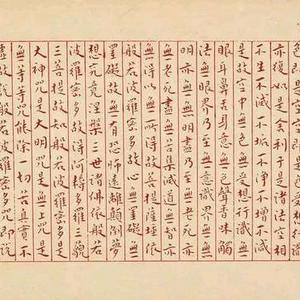 即是空空即是色受想行識
亦復如是舍利子是諸法空相
不生不滅不垢不淨不增不減
是故空中無色無受想行識無
眼耳鼻舌身意無色聲香味觸
法無眼界乃至無意識界無無
明亦無無明盡乃至無老死亦
無老死盡無苦集滅道無智亦
無得以無所得故菩提薩埵依
般若波羅蜜多故心無罣礙無
罣礙故無有恐怖遠離顛倒夢
想究竟涅槃三世諸佛依般若
波羅蜜多故得阿耨多羅三藐
三菩提故知般若波羅蜜多是
大神咒是大明咒是無上咒是
無等等咒能除一切苦真實不
虛故說般若波羅蜜多咒即說